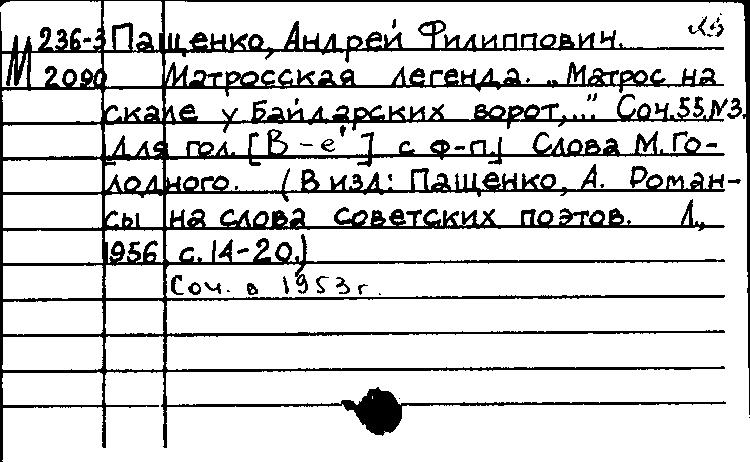 М 236-3 Пащенко, Андрей Филиппович.
2090 Матросская легенда. „Матрос на
скале у Байдарских ворот,..." Соч.55,N3.
[Для гол. [B-e'] с ф-п.] Слова М. Го-
лодного. (В изд: Пащенко, А. Роман-
сы на слова советских поэтов. Л.,
1956 с. 14-20.)
Соч. в 1953 г.